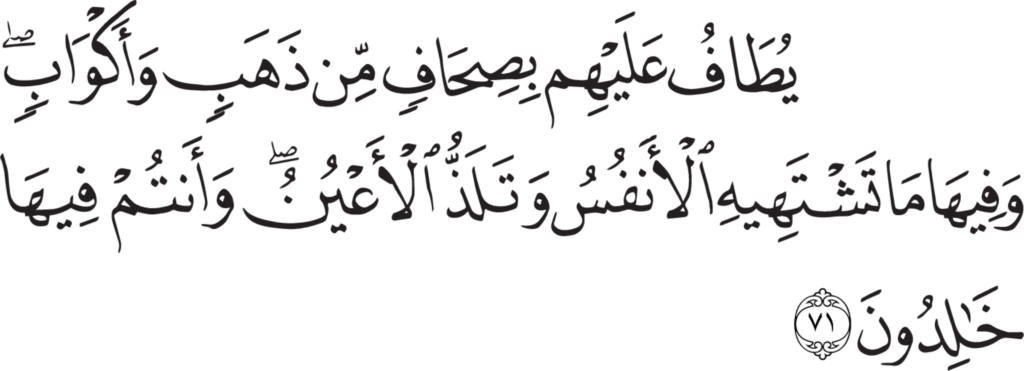 يُطَافُ عَلَيْهِم بِصِحَافٍ مِّن ذَهَبٍ وَأَكْوَابٍ ۖ
وَفِيهَا مَا تَشْتَهِيهِ ٱلْأَنفُسُ وَتَلَذُّ ٱلْأَعْيُنُ ۖ وَأَنتُمْ فِيهَا
خَـٰلِدُونَ ٧١